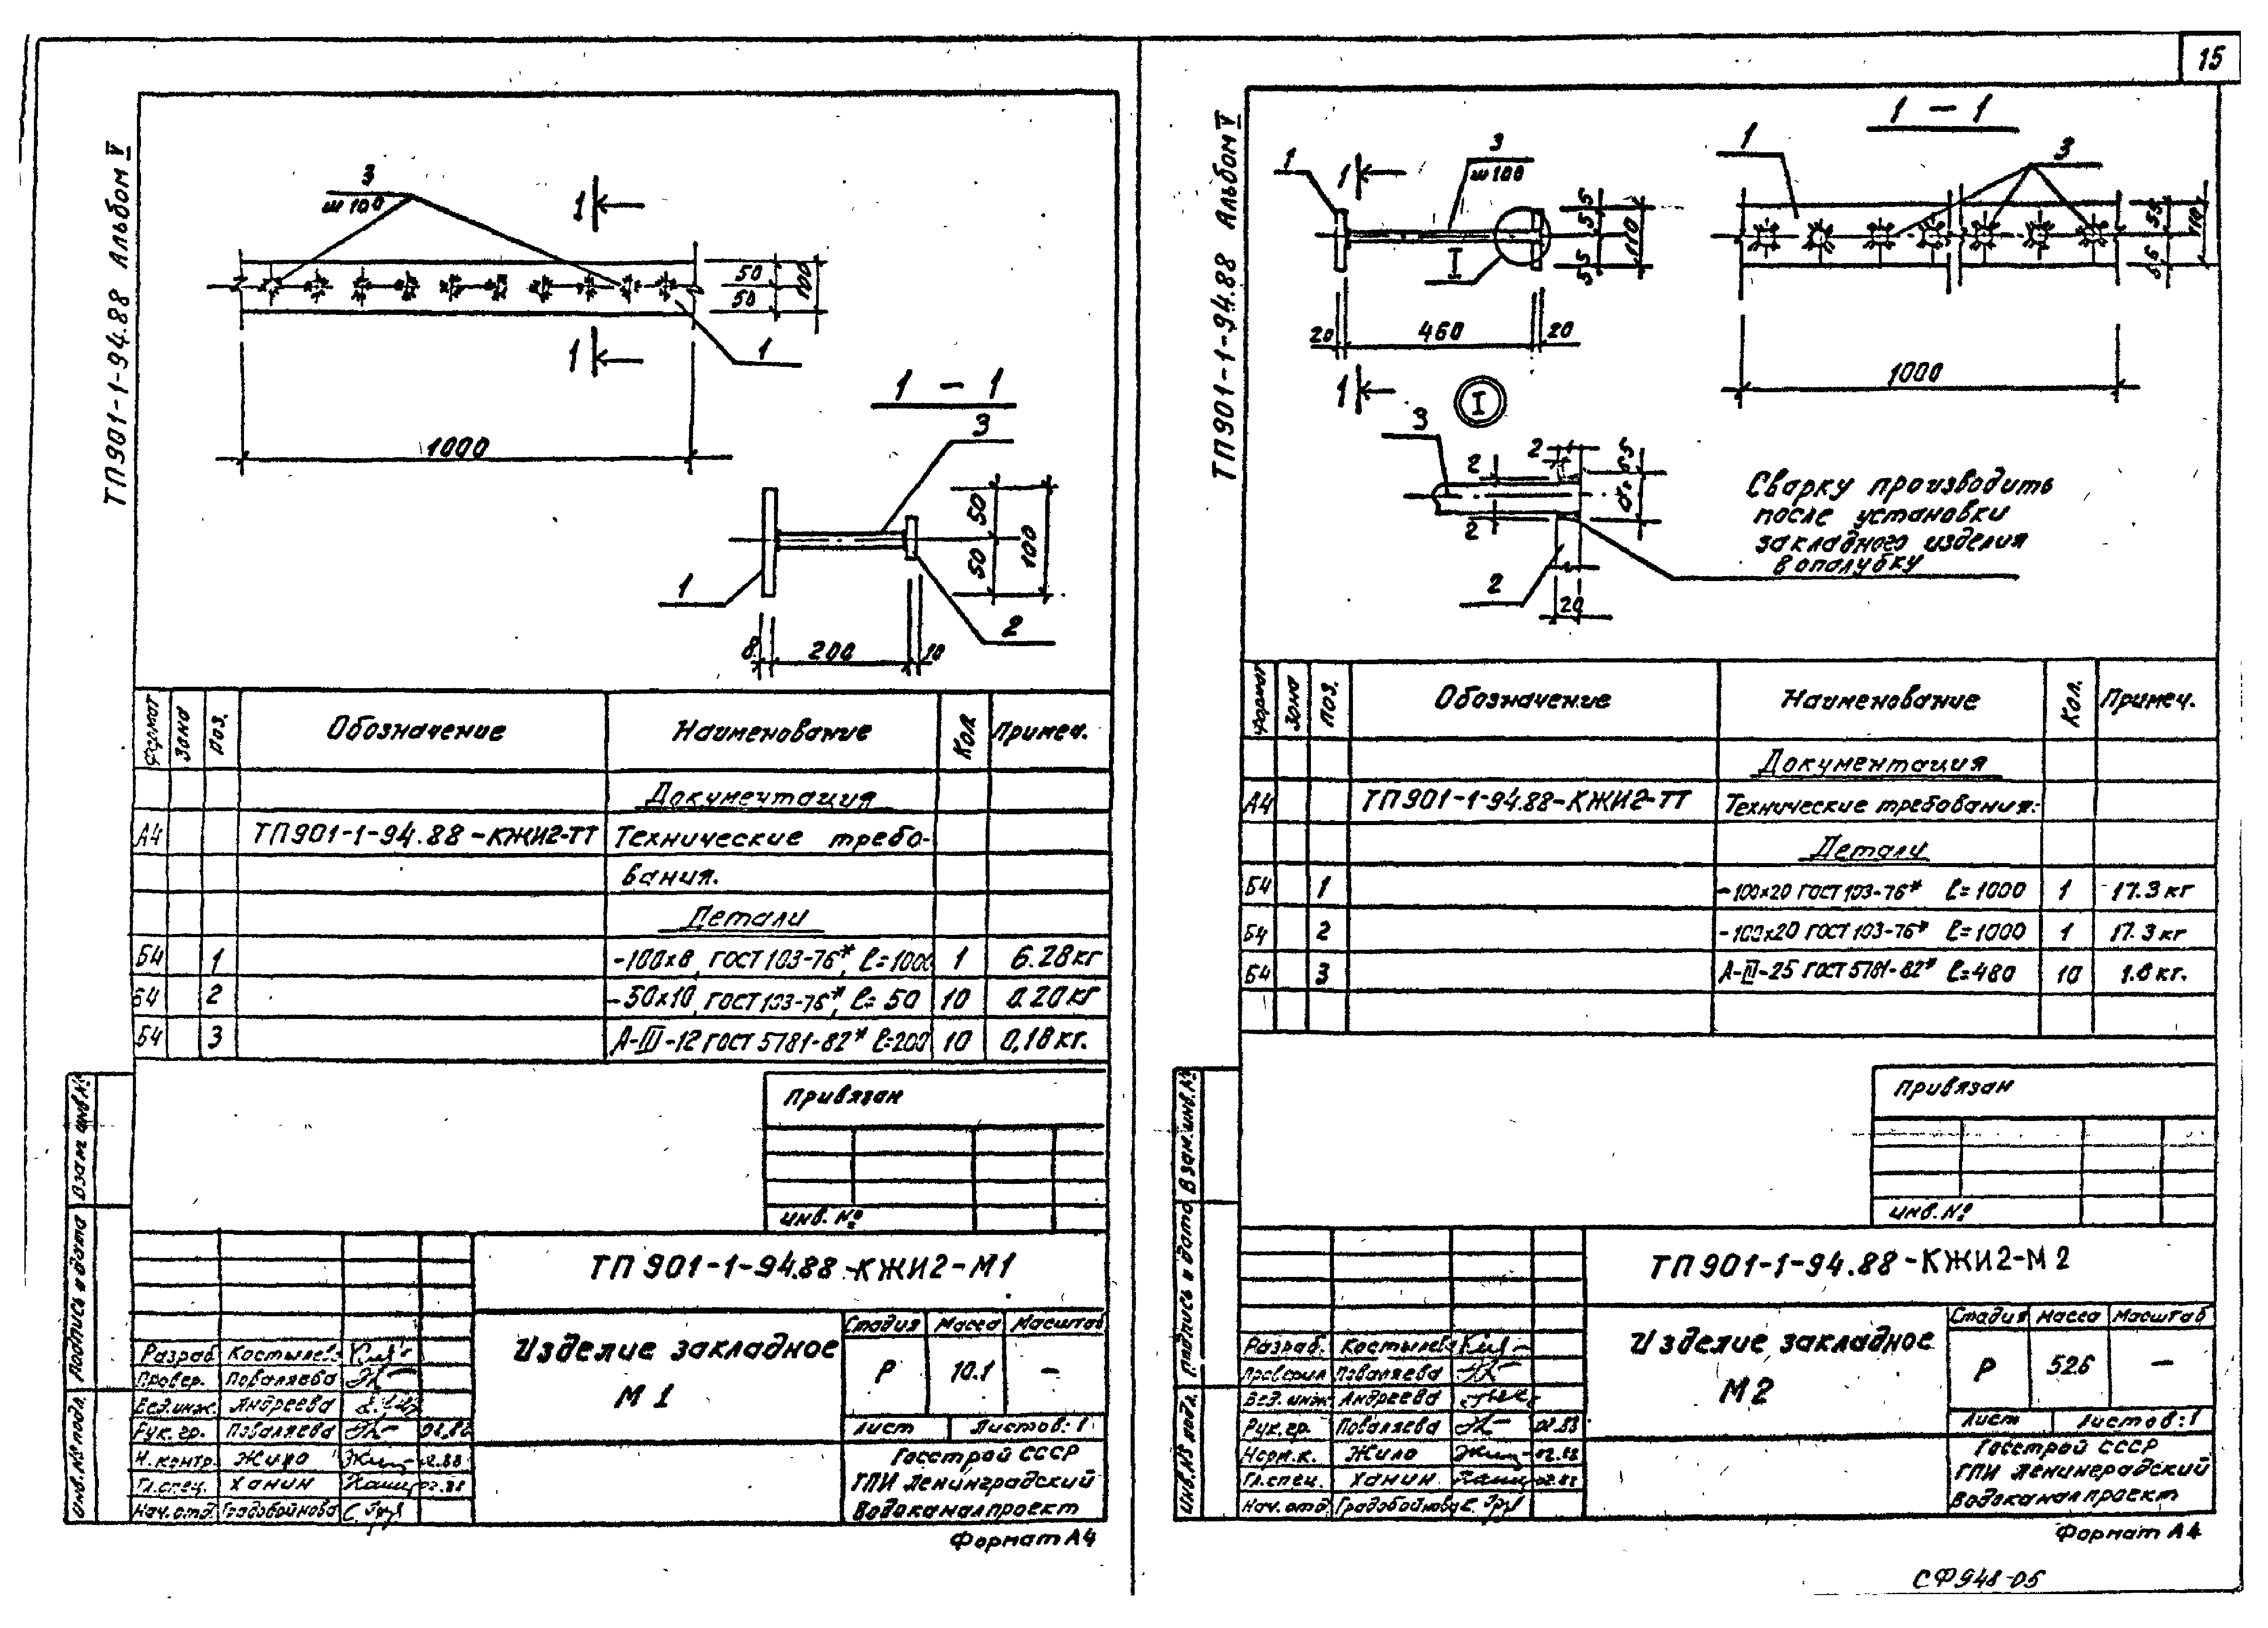 15
ТП901-1-94.88 Альбом V
3
ш 100
1
1
50
50
100
1
1000
1 - 1
3
50
50
100
1
2
8
200
10
Формат
Зона
Поз.
Обозначение
Наименование
Кол
Примеч.
Документация
А4 ТП901-1-94.88-КЖИ2-ТТ Технические требо-
вания.
Детали
Б4 1 -100х8, ГОСТ 103-76*, ℓ=1000 1 6.28кг
Б4 2 -50х10, ГОСТ 103-76*, ℓ= 50 10 0.20кг
Б4 3 А-III-12 ГОСТ 5781-82* ℓ=200 10 0,18кг.
Привязан
инв. №
Взам инв.№
Подпись и дата
Инв.№ подл.
ТП 901-1-94.88-КЖИ2-М1
Изделие закладное
М 1
Стадия Масса Масштаб
Р 10.1 –
Лист Листов: 1
Разраб. Костылева
Провер. Поваляева
Вед.инж. Андреева
Рук. гр. Поваляева 02.88
Н.контр. Жило 02.88
Гл.спец. Ханин 02.88
Нач.отд. Градобойнова
Госстрой СССР
ГПИ Ленинградский
Водоканалпроект
Формат А4
ТП901-1-94.88 Альбом V
1
1
3
ш 100
55
55
110
I
20
460
20
1
1 - 1
1
3
55
55
110
1000
I
3
2
2
2
2
20
Сварку производить
после установки
закладного изделия
в опалубку
Формат
Зона
Поз.
Обозначение
Наименование
Кол.
Примеч.
Документация
А4 ТП901-1-94.88-КЖИ2-ТТ Технические требования.
Детали
Б4 1 -100х20 ГОСТ 103-76* ℓ=1000 1 17.3кг
Б4 2 -100х20 ГОСТ 103-76* ℓ=1000 1 17.3кг
Б4 3 А-III-25 ГОСТ 5781-82* ℓ=480 10 1.8кг.
Привязан
инв. №
Взам.инв.№
Подпись и дата
Инв.№ подл.
ТП 901-1-94.88-КЖИ2-М2
Изделие закладное
М2
Стадия Масса Масштаб
Р 52.6 –
Лист Листов:1
Разраб. Костылева
Проверил Поваляева
Вед. инж. Андреева
Рук.гр. Поваляева 02.88
Норм.к. Жило 02.88
Гл.спец. Ханин 02.88
Нач.отд. Градобойнова
Госстрой СССР
ГПИ Ленинградский
Водоканалпроект
Формат А4
СФ948-05